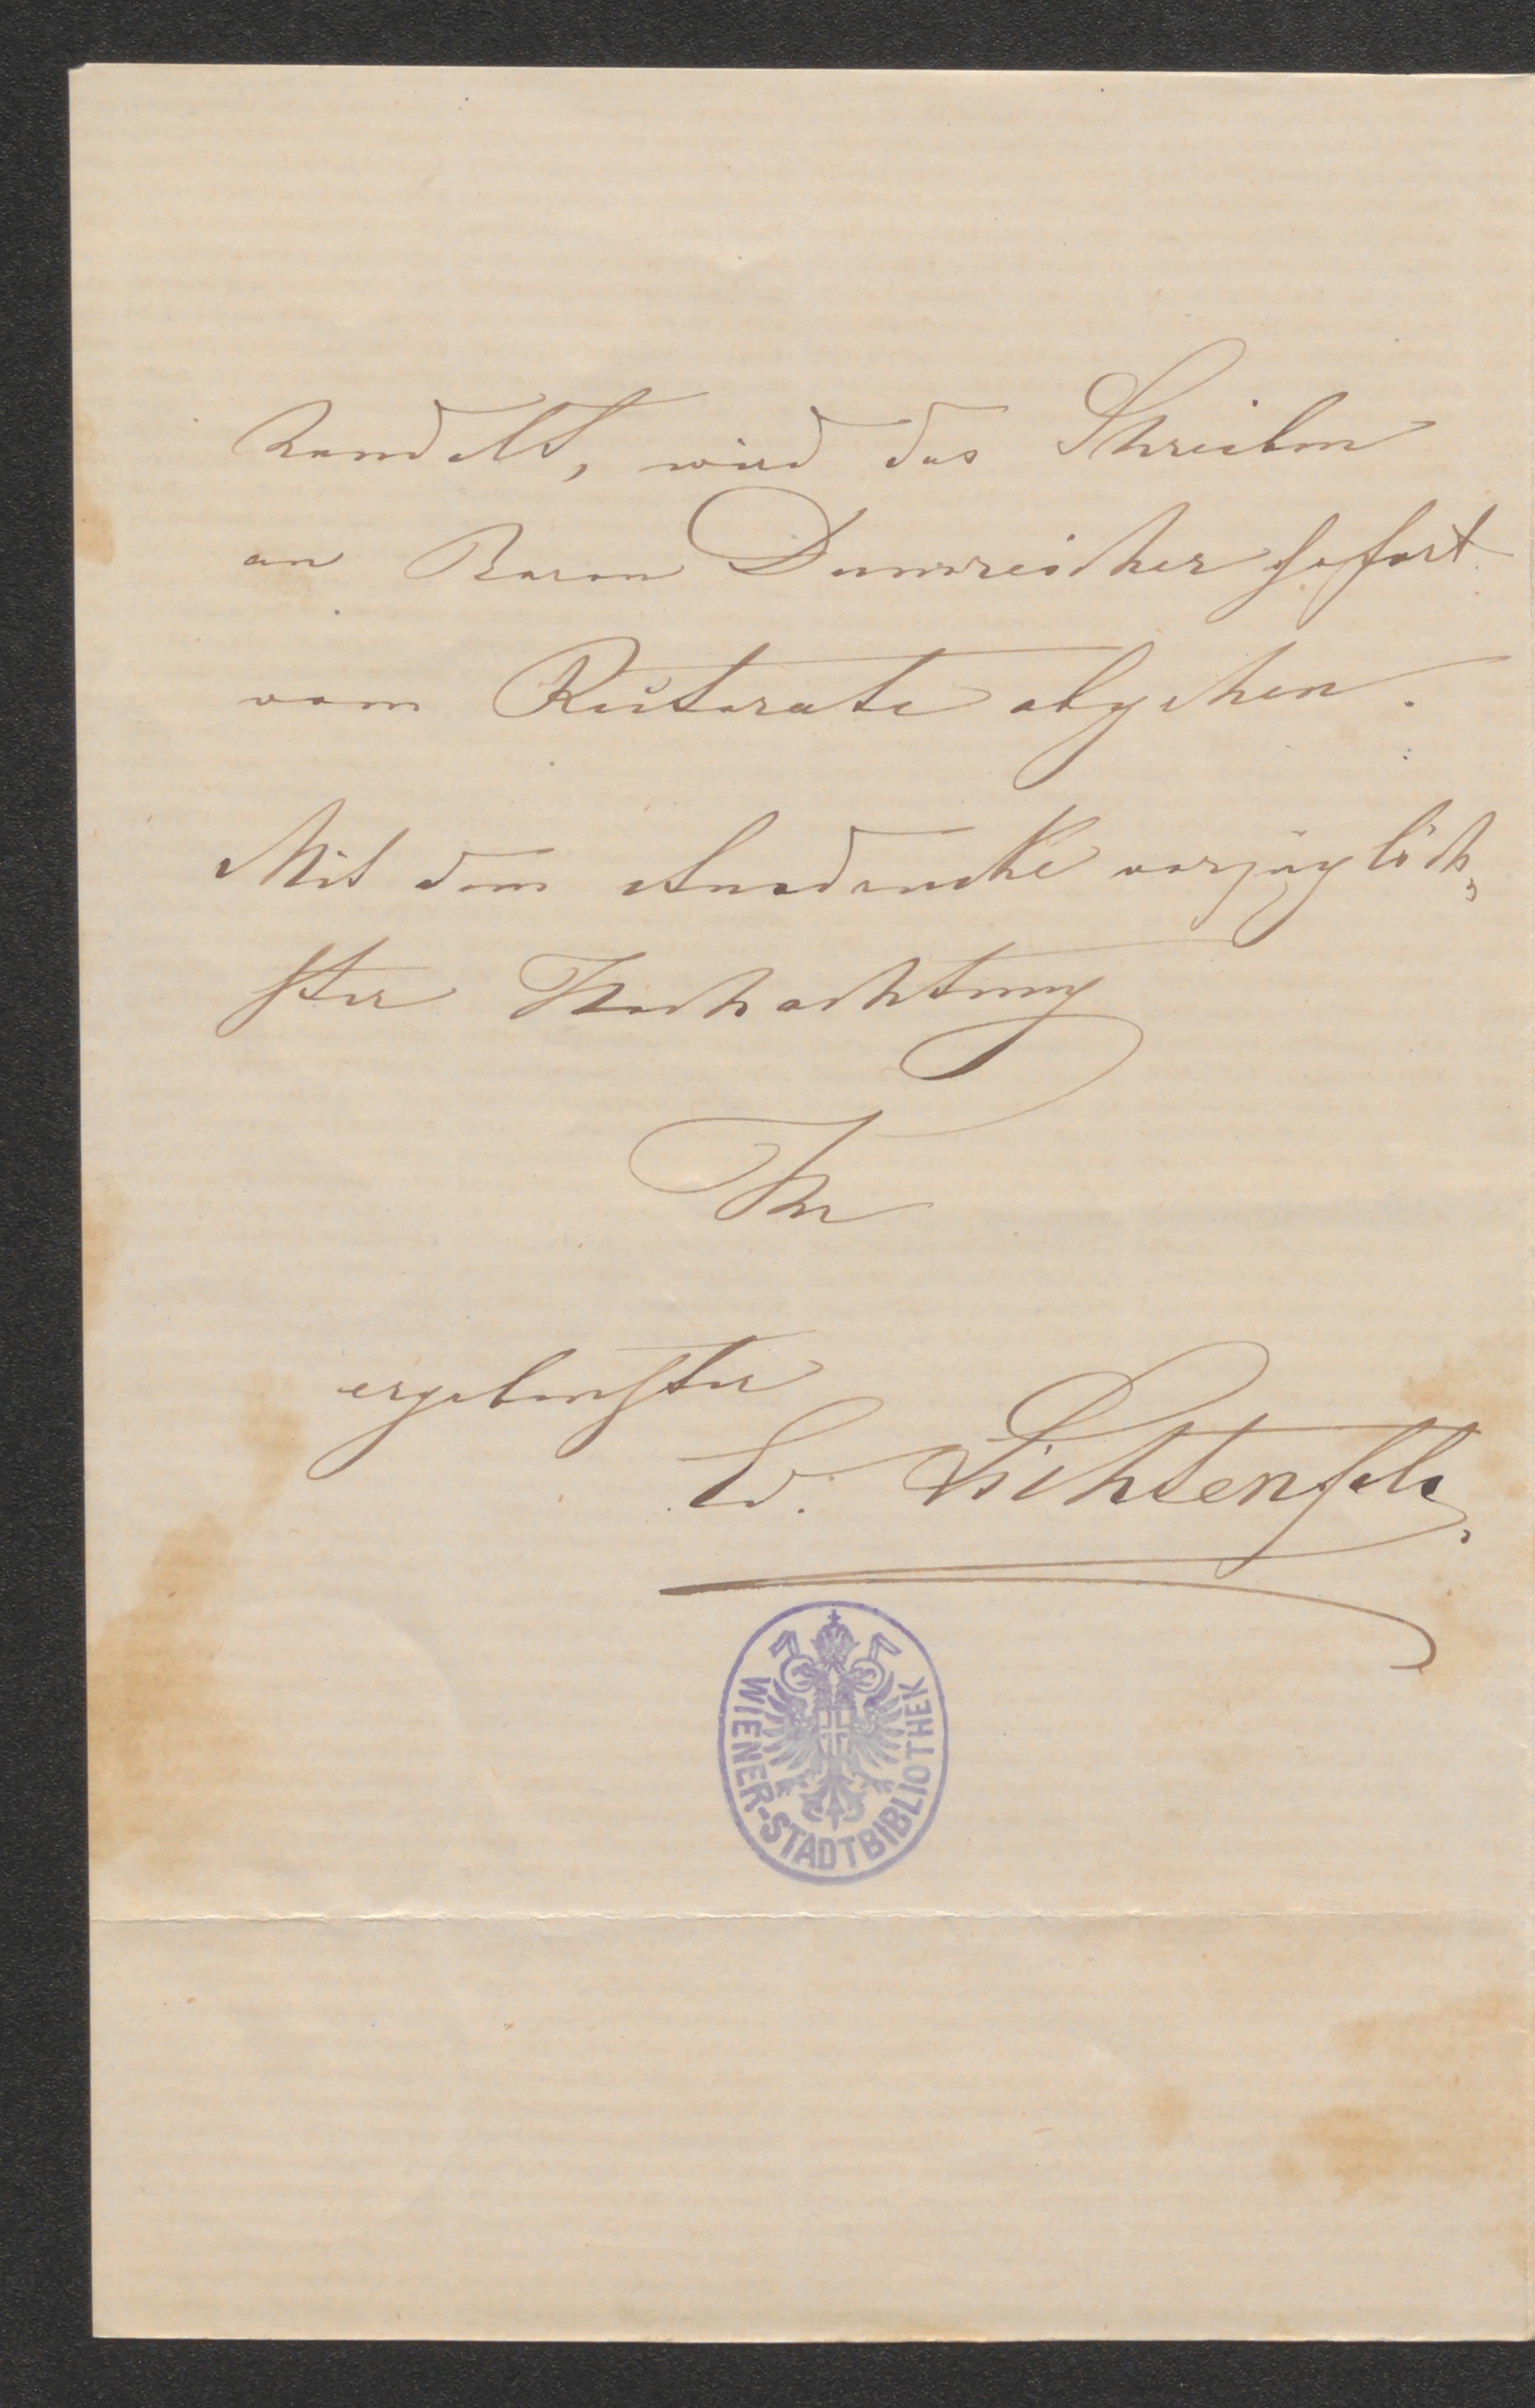 handelt, wird das Schreiben
an Baron Dumreicher sofort
vom Rectorate abgehen.
Mit dem Ausdrucke vorzüglich„
ster Hochachtung
Ihr
ergebenster
Ed. Lichtenfels.
WIENER-STADTBIBLIOTHEK